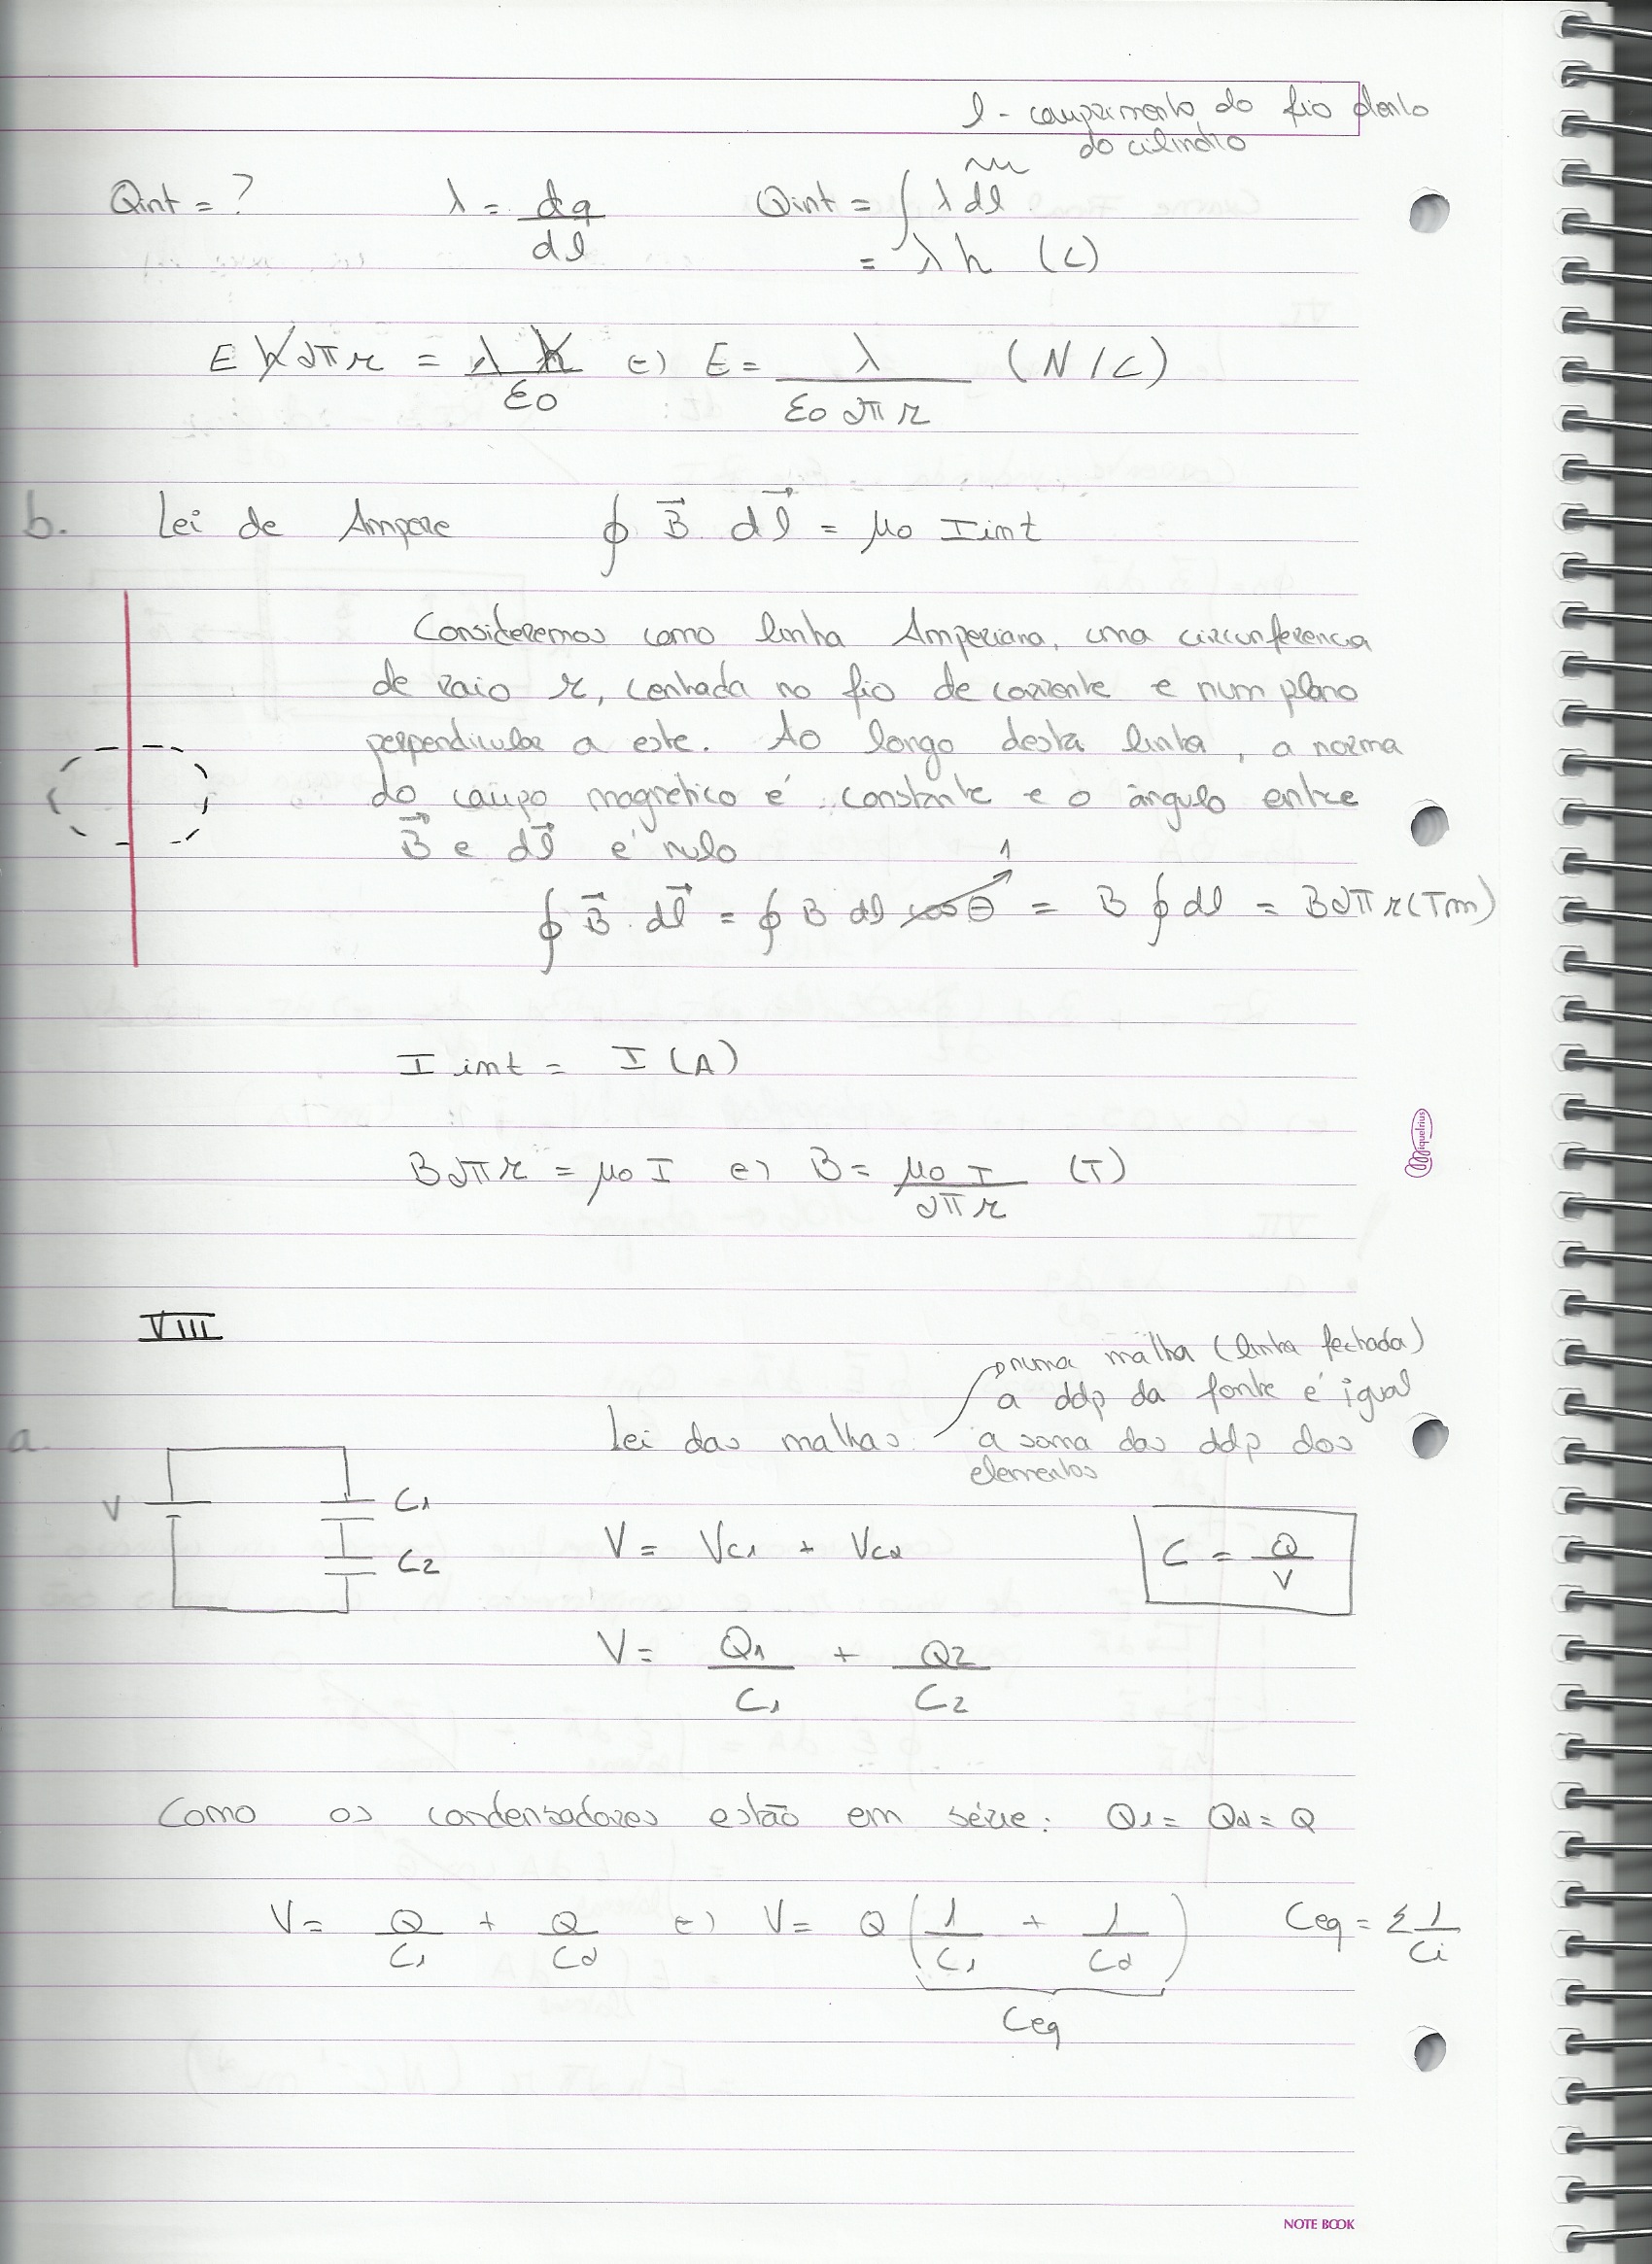 l - comprimento do fio dento
do cilindro
Qint = ? λ = dq/dl Qint = ∫ λ dl
= λ h (C)
E h 2π r = λ h/ε0 ⇔ E = λ/ε0 2π r (N/C)
b. Lei de Ampere ∮ B⃗ . dl⃗ = μ0 Iint
Consideremos como linha Amperiana, uma circunferencia
de raio r, centrada no fio de corrente e num plano
perpendicular a este. Ao longo desta linha, a norma
do campo magnético é constante e o ângulo entre
B⃗ e dl⃗ é nulo
1
∮ B⃗ . dl⃗ = ∮ B dl cos θ = B ∮ dl = B 2π r (Tm)
I int = I (A)
B 2π r = μ0 I ⇔ B = μ0 I/2π r (T)
Miquelrius
VIII
numa malha (linha fechada)
a ddp da fonte é igual
a. Lei das malhas a soma das ddp dos
elementos
V C1
C2
V = VC1 + VC2 C = Q/V
V = Q1/C1 + Q2/C2
Como os condensadores estão em série: Q1 = Q2 = Q
V = Q/C1 + Q/C2 ⇔ V = Q (1/C1 + 1/C2) Ceq = Σ 1/Ci
Ceq
NOTE BOOK